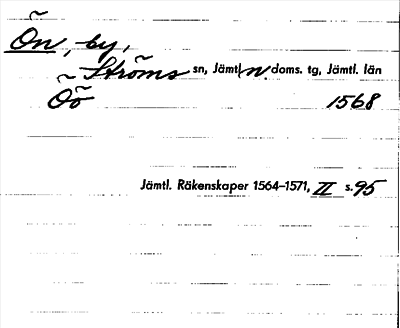 Õn, by,
Ströms sn, Jämtl n doms. tg, Jämtl. län
Õõ 1568
Jämtl. Räkenskaper 1564–1571, II s. 95